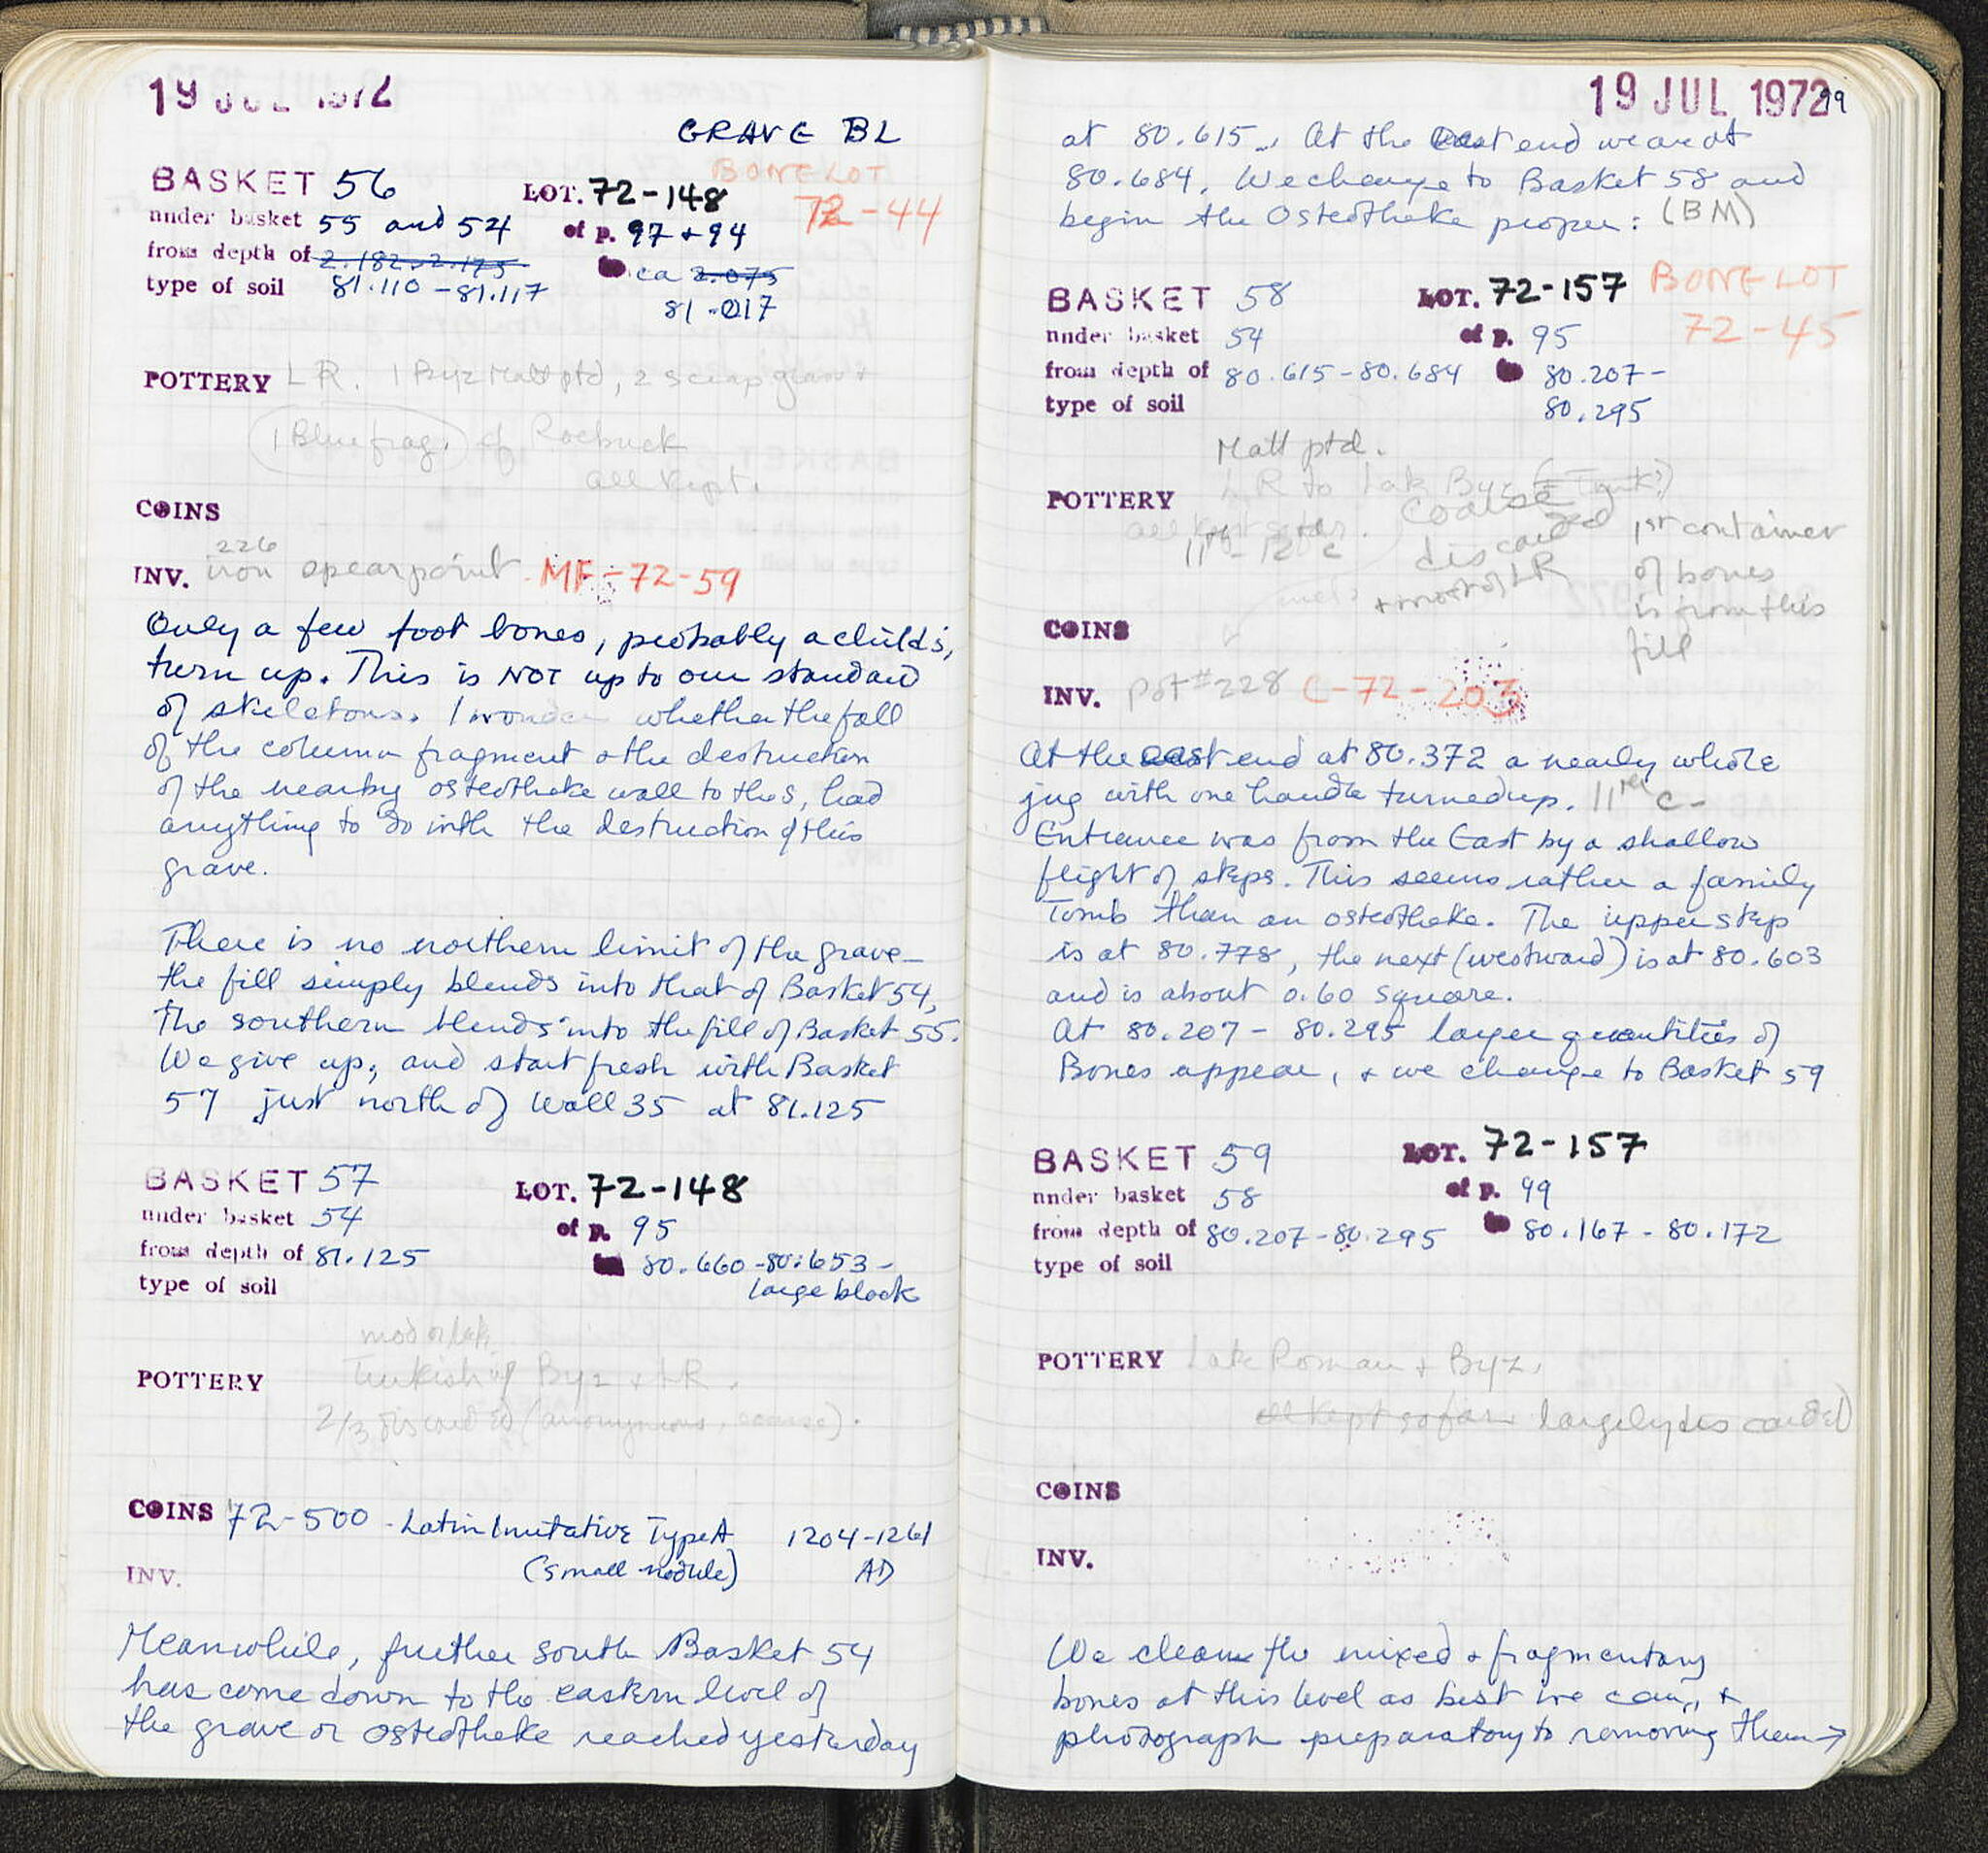 19 JUL 1972
GRAVE BL
BASKET 56 LOT. 72-148 BONE LOT 72-44
under basket 55 and 54 of p. 97 + 94
from depth of 2.182-2.175 ca 2.075
type of soil 81.110 - 81.117 81.017
POTTERY LR. 1 Byz Matt ptd, 2 scrap glass +
1 Blue frag. cf Roebuck
all kept.
COINS
226
INV. iron spearpoint. MF-72-59
Only a few foot bones, probably a child's,
turn up. This is NOT up to our standard
of skeletons. I wonder whether the fall
of the column fragment & the destruction
of the nearby osteotheke wall to the S, had
anything to do with the destruction of this
grave.
There is no northern limit of the grave –
the fill simply blends into that of Basket 54,
The southern blends into the fill of Basket 55.
We give up, and start fresh with Basket
57 just north of Wall 35 at 81.125
BASKET 57 LOT. 72-148
under basket 54 of p. 95
from depth of 81.125 80.660-80.653 -
type of soil large block
mod or late
POTTERY Turkish Byz + LR.
2/3 discarded (anonymous, coarse).
COINS 72-500 - Latin Imitative Type A 1204-1261
INV. (small module) AD
Meanwhile, further south Basket 54
has come down to the eastern level of
the grave or osteotheke reached yesterday
19 JUL 1972 99
at 80.615. At the east end we are at
80.684. We change to Basket 58 and
begin the Osteotheke proper: (BM)
BASKET 58 LOT. 72-157 BONE LOT 72-45
under basket 54 of p. 95
from depth of 80.615-80.684 80.207-
type of soil 80.295
Matt ptd.
POTTERY LR to Late Byz (= Turk?)
all kept so far. coarse discarded
11th-12th c + most of LR
1st container
of bones
is from this
fill
COINS
INV. pot #228 C-72-203
At the east end at 80.372 a nearly whole
jug with one handle turned up. 11th c -
Entrance was from the East by a shallow
flight of steps. This seems rather a family
Tomb than an osteotheke. The upper step
is at 80.778, the next (westward) is at 80.603
and is about 0.60 square.
At 80.207 - 80.295 larger quantities of
Bones appear, + we change to Basket 59
BASKET 59 LOT. 72-157
under basket 58 of p. 99
from depth of 80.207-80.295 80.167 - 80.172
type of soil
POTTERY Late Roman + Byz.
all kept so far largely discarded
COINS
INV.
We clean the mixed + fragmentary
bones at this level as best we can, +
photograph preparatory to removing them →